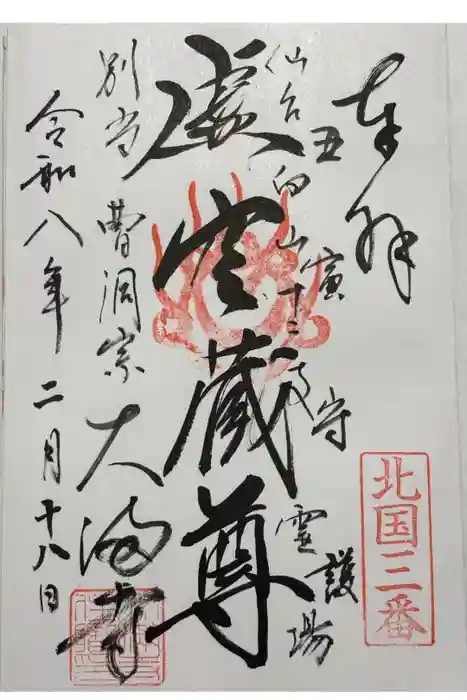 奉拝
丑寅守護
仙台白山十二支霊場
虚空蔵尊
別当 曹洞宗 大満寺
令和八年二月十八日
北国三番